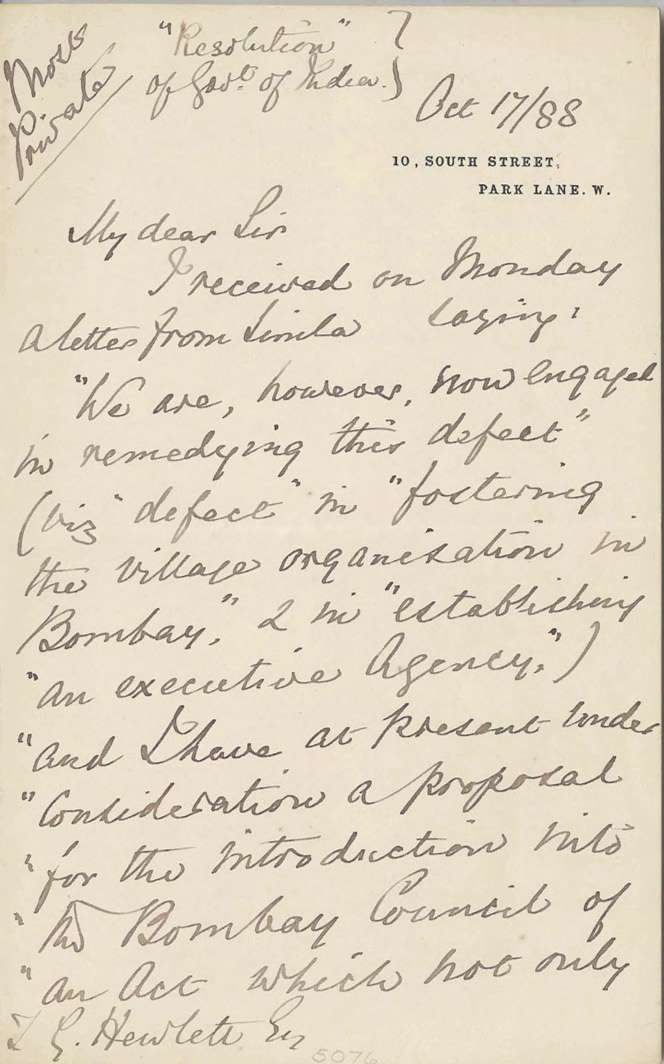 Most
Private
"Resolution"
of Govt of India.
Oct 17/88
10, SOUTH STREET,
PARK LANE. W.
My dear Sir
I received on Monday
a letter from Simla saying:
"We are, however, now engaged
in remedying this defect"
(viz "defect" in "fostering
the village organisation in
Bombay," & in "establishing
"an executive Agency,")
"and I have at present under
"consideration a proposal
"for the introduction into
"the Bombay Council of
"an Act which not only
T G. Hewlett Esq
5076